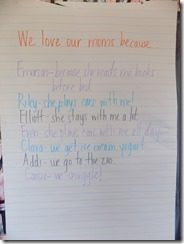 We love our moms because
Emerson-because she reads me books
before bed
Riley-she plays cars with me!
Elliott-she stays with me a lot
Evan-she plays cars with me all day
Clara-we get ice cream yogurt
Addi-we go to the zoo
we snuggle!